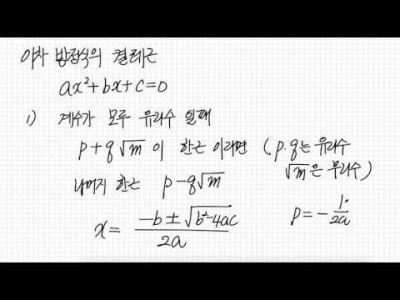 이차 방정식의 켤레근
ax²+bx+c=0
1) 계수가 모두 유리수 일때
p+q√m 이 한근 이라면 (p.q는 유리수
√m은 무리수)
나머지 한근 p-q√m
x = (-b±√(b²-4ac))/2a
p = -b/2a